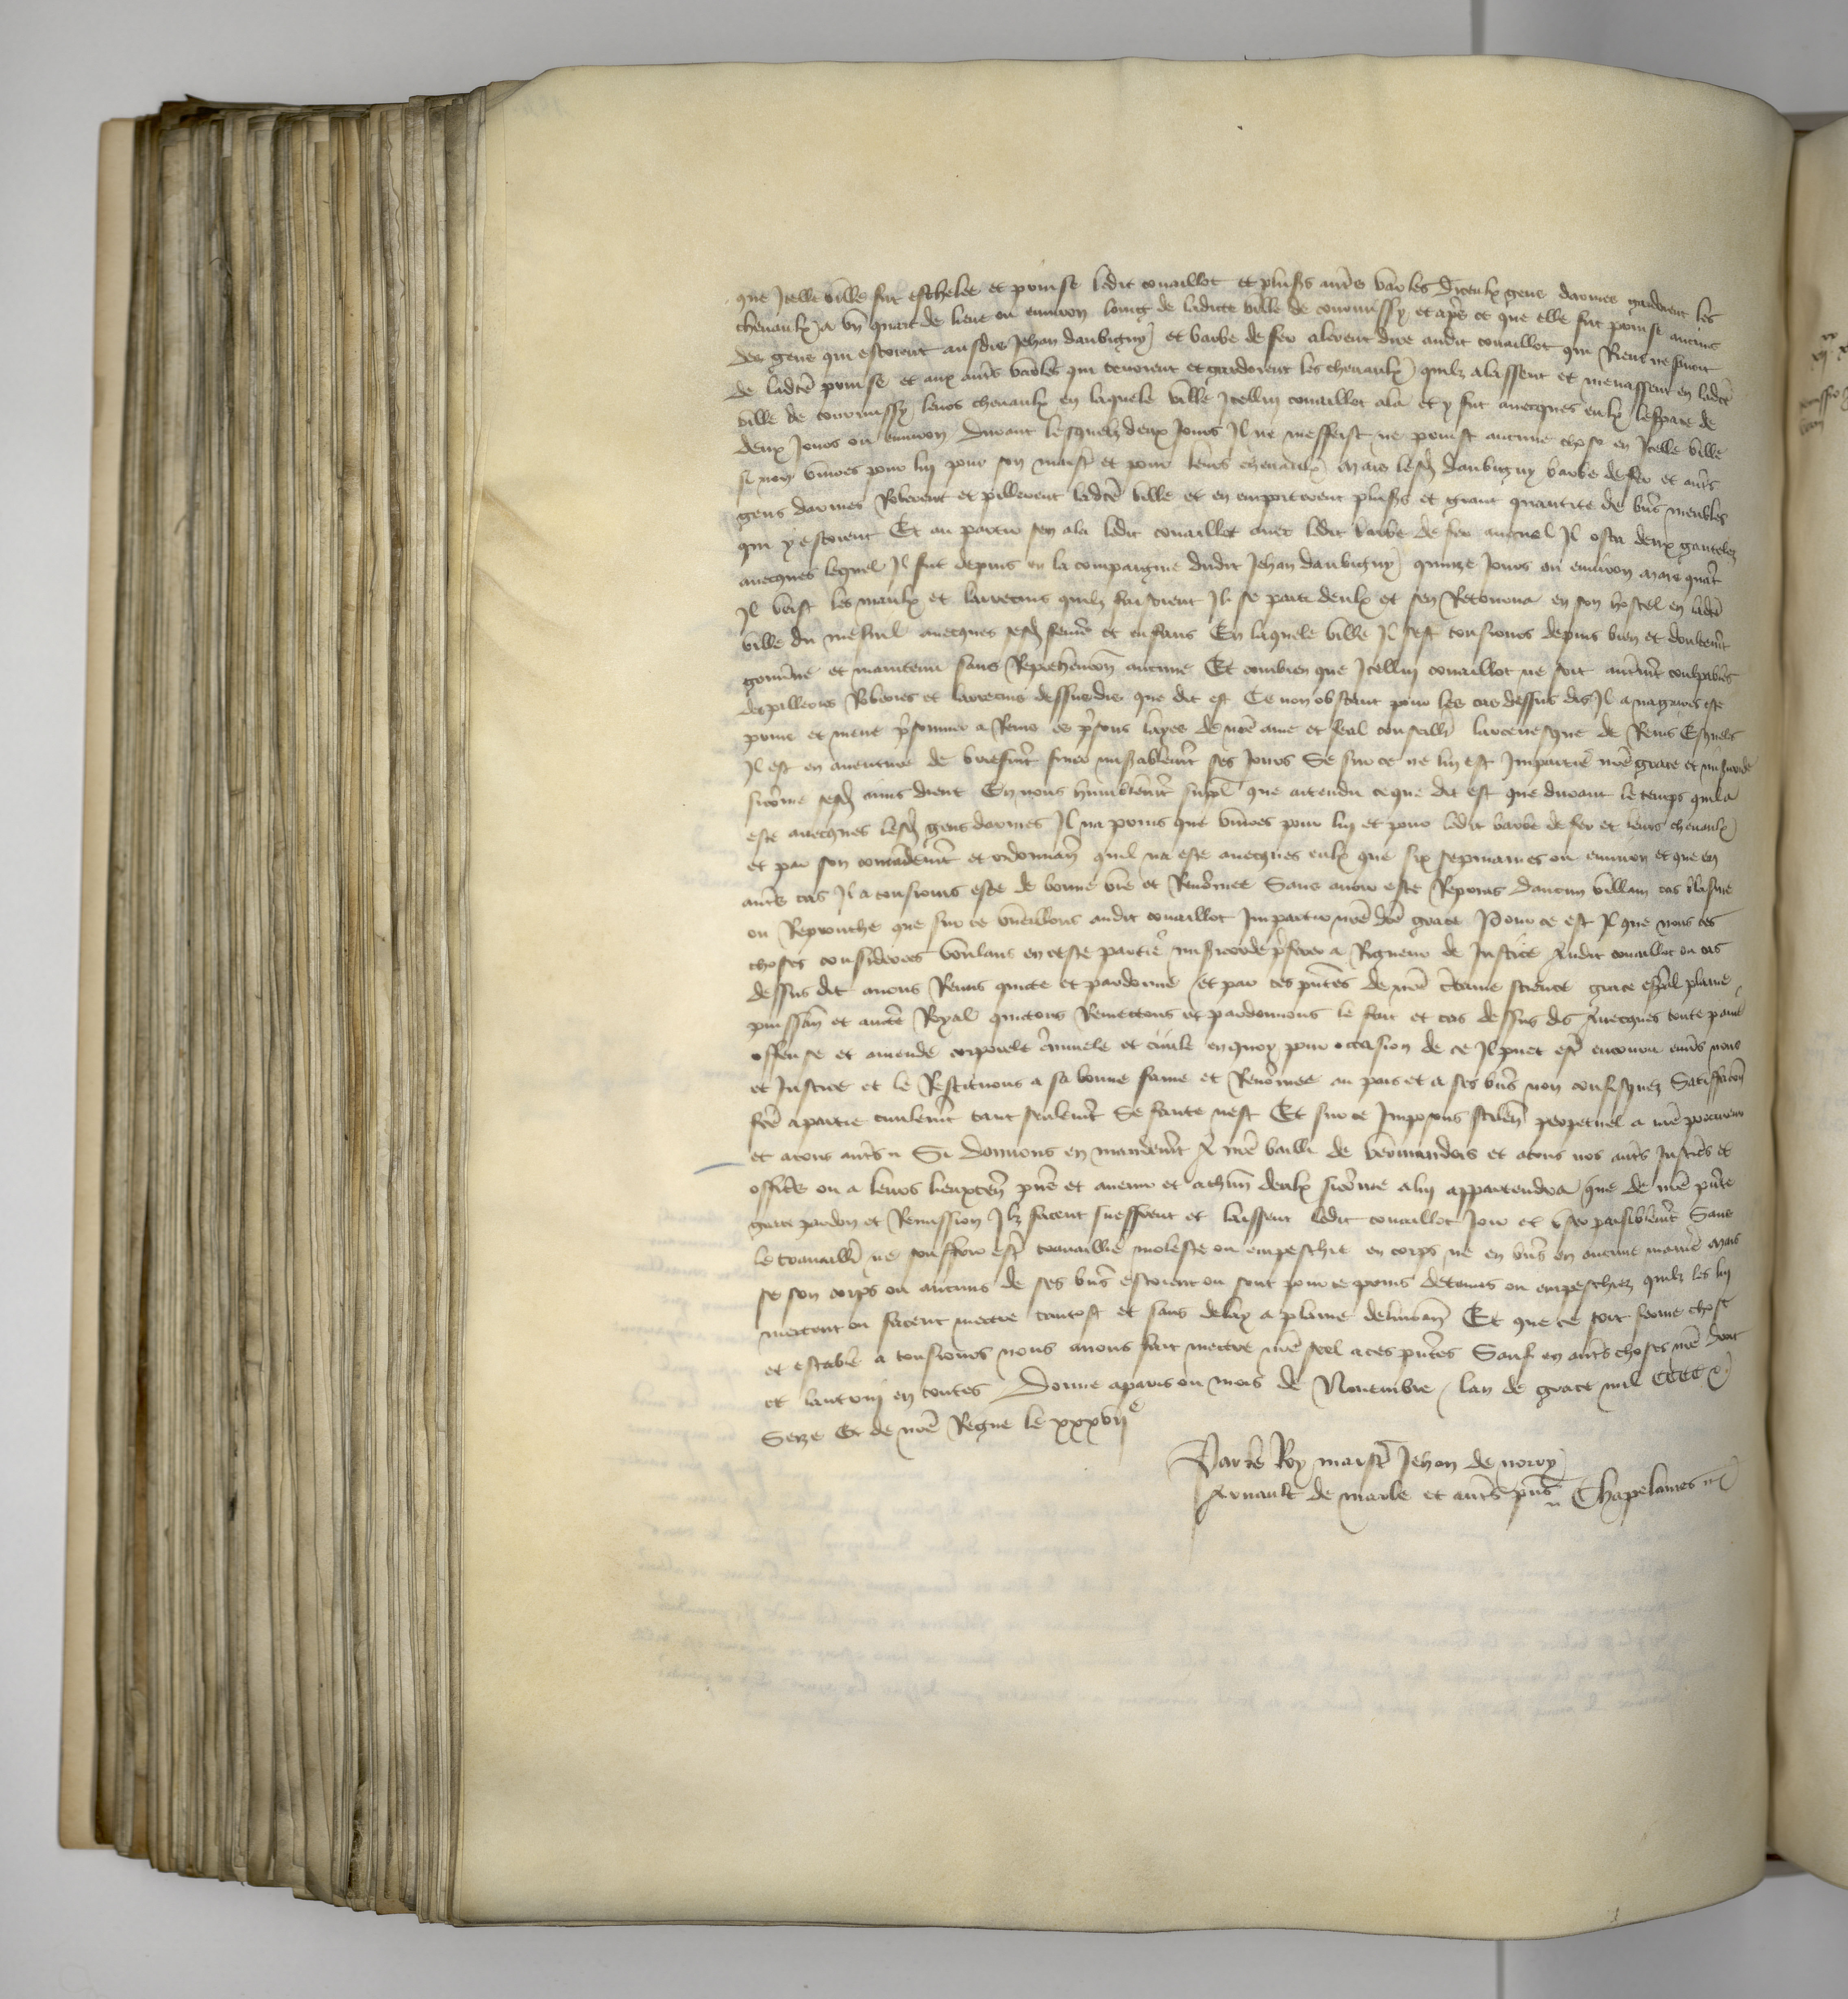 que Icelle ville fut eschelee et prinse ledit couaillot et plus̃ au͂es varles diceulx gens darmes garderent les
cheuaulx a vn quart de lieue ou enuiron loing de ladicte ville de commissy et ap̃s ce que elle fut prinse aucuns
des gens qui estoient ausdis Jehan daubigny et barbe de fer alerent dire audit couaillot qui Riens ne sauoit
de ladc̃e prinse et aux aut̃s varles qui tenoient et gardoient les cheuaulx quilz alassent et menassent en ladc̃e
ville de commissy leurs cheuaulx en laquele ville Icellui couaillot ala et y fut auecques eulx lespace de
deux Jours ou enuiron durant lesquelz deux Jours Il ne messeist ne prinst aucune chose en Icelle ville
si non viures pour lui pour son maist̃ et pour leurs cheuaulx Mais lesd̃ daubigny barbe de fer et aut̃s
gens darmes Roberent et pillerent ladc̃e ville et en emporterent plus̃ et grant quantite de bn̄s meubles
qui y estoient Et au partir sen ala ledit couaillot auec ledit barbe de fer auquel Il osta deux gantelez
auecques lequel Il fut depuis en la compaignie dudit Jehan daubigny quinze Jours ou enuiron mais quāt
Il veist les maulx et larrecins quilz faisoient Il se parti deulx et sen Retourna en son hostel en ladc̃e
ville du mesnil auecques sesd̃ feme et enfans En laquele ville Il sest tousiours depuis bien et doulcem̄t
gouu̅ne et maintenu sans Reprehencion aucune Et combien que Icellui couaillot ne soit autrem̄t coulpables
des pilleries Roberies et larrecins dessusdis que dit est Ce non obstant pour les cas dessus dis Il a nagaires este
prins et mene p̃sonnier a Reins es p̃sons layes de nr̃e ame et feal conseill̃ larceuesque de Reins Esqueles
Il est en auenture de briefm̄t finer miserablem̄t ses Jours Se sur ce ne lui est Impartie nr̃e grace et misericorde
sicõme sesd̃ amis dient En nous humblem̄t suppl̃ que attendu ce que dit est que durant le temps quil a
este auecques lesd̃ gens darmes Il na prins que viures pour lui et pour ledit barbe de fer et leurs cheuaulx
et par son comādem̄t et ordonnan̄ quil na este auecques eulx que six sepmaines ou enuiron et que en
aut̃s cas Il a tousiours este de bonne vie et Renõmee Sans auoir este Repris daucun villain cas blasme
ou Reprouche que sur ce vueillons audit couaillot Impartir nr̃e dc̃e grace Pour ce est Il que nous ces
choses considerees voulans en ceste partie misericorde p̃ferer a Rigueur de Justice Audit couaillot ou cas
dessus dit auons Remis quicte et pardonne et par ces p̃ntes de nr̃e c̃taine science grace esp̃al plaine
puissan̄ et aucte Royal quictons Remettons et pardonnons le fait et cas dessus dis Auecques toute paine
offense et amende corporele c̃minele et ciuile enquoy pour occasion de ce Il puet estr̃ encouru enu̅s nous
et Justice et le Restituons a sa bonne fame et Renõmee au pais et a ses bn̄s non confisquez Satiffac̃on
fc̃e a partie ciuilem̄t tant seulem̄t Se faicte nest Et sur ce Imposons silen̄ perpetuel a nr̃e procureur
et a tous aut̃s Si donnons en mandem̄t A nr̃e bailli de vermandois et a tous nos aut̃s Justic̃s et
officĩs ou a leurs lieuxten̄ p̃ns et auenir et a chūn deulx sicõme a lui appartendra que de nr̃e p̃nte
grace pardon et Remission Ilz facent sueffrent et laissent ledit couaillot Joir et vser paisiblem̄t Sans
le trauaill̃ ne souffrir estr̃ trauaillie moleste ou empeschie en corps ne en bn̄s en aucune manie͂ Mais
se son corps ou aucuns de ses bn̄s estoient ou sont pour ce prins detenus ou empeschiez quilz les lui
mettent ou facent mettre tantost et sans delay a plaine deliuran̄ Et que ce soit ferme chose
et estable a tousiours nous auons fait mettre nr̃e seel a ces p̃ntes Sauf en aut̃s choses nr̃e droit
et lautrui en toutes Donne a paris ou mois de Nouembre lan de grace mil CCCC
Seze Et de nr̃e Regne le xxxvije
Par le Roy maist̃ Jehan de norry
Arnault de marle et aut̃s p̃ns Chapelaines